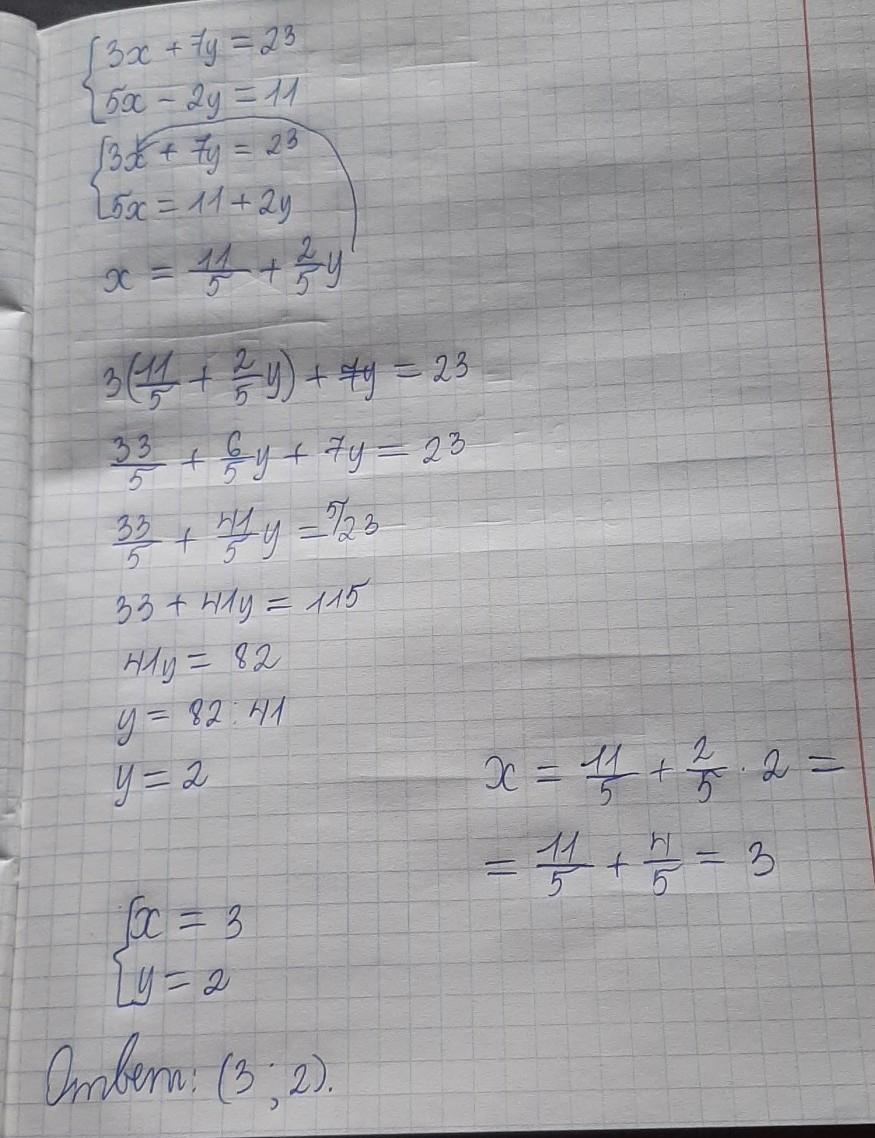 {3x + 7y = 23
{5x - 2y = 11
{3x + 7y = 23
{5x = 11 + 2y
x = 11/5 + 2/5 y
3(11/5 + 2/5 y) + 7y = 23
33/5 + 6/5 y + 7y = 23
33/5 + 41/5 y = 5/23
33 + 41y = 115
41y = 82
y = 82 : 41
y = 2
x = 11/5 + 2/5 · 2 =
= 11/5 + 4/5 = 3
{x = 3
{y = 2
Ответ: (3 ; 2).